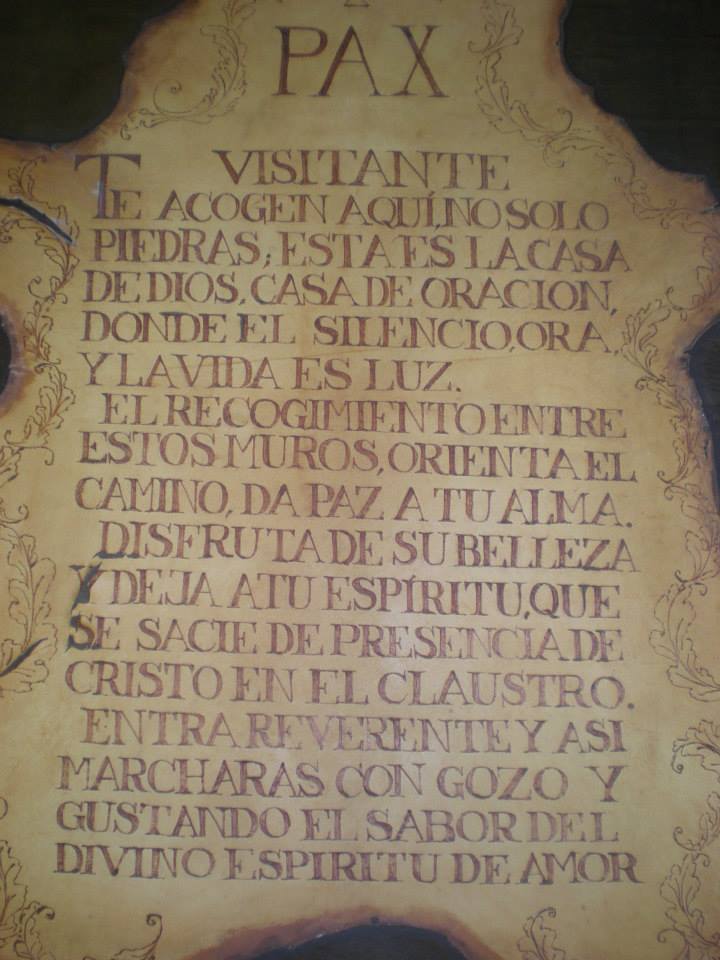 PAX
VISITANTE
TE ACOGEN AQUÍ, NO SOLO
PIEDRAS; ESTA ES LA CASA
DE DIOS, CASA DE ORACION,
DONDE EL SILENCIO, ORA,
Y LA VIDA ES LUZ.
EL RECOGIMIENTO ENTRE
ESTOS MUROS, ORIENTA EL
CAMINO, DA PAZ A TU ALMA.
DISFRUTA DE SU BELLEZA
Y DEJA A TU ESPÍRITU, QUE
SE SACIE DE PRESENCIA DE
CRISTO EN EL CLAUSTRO.
ENTRA REVERENTE Y ASI
MARCHARAS CON GOZO Y
GUSTANDO EL SABOR DEL
DIVINO ESPIRITU DE AMOR